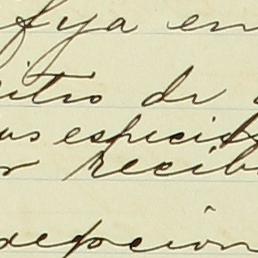 fya en
itio de
us especi
recib
depción